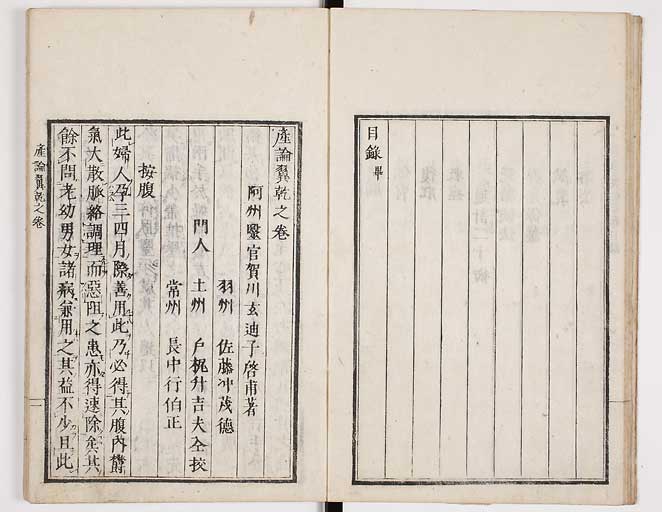 目錄畢
產論翼乾之卷
阿州醫官賀川玄迪子啓甫著
羽州 佐藤冲茂德
門人 土州 戶梶升吉夫仝挍
常州 長中行伯正
按腹
此婦人孕三四月際善用此乃必得其腹內鬱
氣大散脈絡調理而惡阻之患亦得速除矣其
餘不問老幼男女諸病兼用之其益不少且此
產論翼乾之卷
一